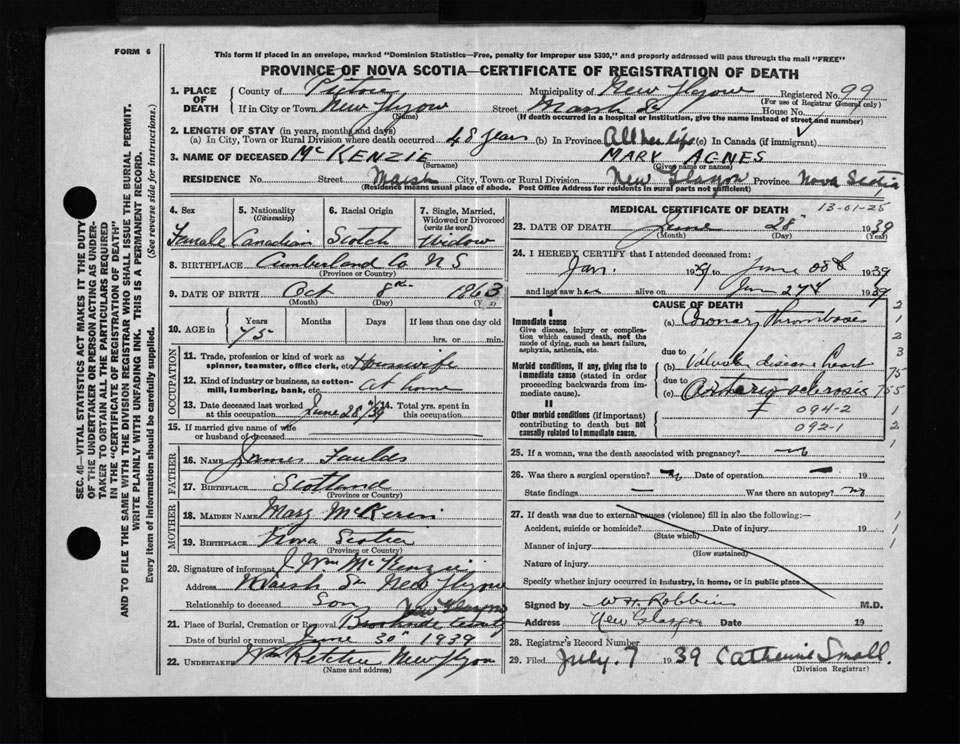 FORM 6
This form if placed in an envelope, marked "Dominion Statistics—Free, penalty for improper use $300," and properly addressed will pass through the mail "FREE"
PROVINCE OF NOVA SCOTIA—CERTIFICATE OF REGISTRATION OF DEATH
1. PLACE OF DEATH County of Pictou Municipality of New Glasgow Registered No. 99
(For use of Registrar General only)
If in City or Town New Glasgow Street Marsh St House No.
(Name) (If death occurred in a hospital or institution, give the name instead of street and number)
2. LENGTH OF STAY (in years, months and days)
(a) In City, Town or Rural Division where death occurred 48 years (b) In Province All her life (c) In Canada (if immigrant)
3. NAME OF DECEASED McKENZIE MARY AGNES
(Surname) (Given name or names)
RESIDENCE No. Street Marsh City, Town or Rural Division New Glasgow Province Nova Scotia
(Residence means usual place of abode. Post Office Address for residents in rural parts not sufficient)
4. Sex 5. Nationality (Citizenship) 6. Racial Origin 7. Single, Married, Widowed or Divorced (write the word)
Female Canadian Scotch Widow
8. BIRTHPLACE Cumberland Co. N S
(Province or Country)
9. DATE OF BIRTH Oct 8th 1863
(Month) (Day) (Year)
10. AGE in Years Months Days If less than one day old
75 hrs. or min.
OCCUPATION
11. Trade, profession or kind of work as spinner, teamster, office clerk, etc. Housewife
12. Kind of industry or business, as cotton-mill, lumbering, bank, etc. at home
13. Date deceased last worked at this occupation June 28/39 14. Total yrs. spent in this occupation
15. If married give name of wife or husband of deceased
FATHER
16. NAME James Faulds
17. BIRTHPLACE Scotland
(Province or Country)
MOTHER
18. MAIDEN NAME Mary
19. BIRTHPLACE Nova Scotia
(Province or Country)
20. Signature of informant J Wm McKenzie
Address Marsh St New Glasgow
Relationship to deceased Son
21. Place of Burial, Cremation or Removal New Glasgow
Date of burial or removal June 30" 1939
22. UNDERTAKER Wm Ritchie New Glasgow
(Name and address)
MEDICAL CERTIFICATE OF DEATH 13-01-25
23. DATE OF DEATH June 28" 1939
(Month) (Day) (Year)
24. I HEREBY CERTIFY that I attended deceased from:
Jan. 1939 to June 1939
and last saw her alive on June 27th 1939
CAUSE OF DEATH
I
Immediate cause
Give disease, injury or complication which caused death, not the mode of dying, such as heart failure, asphyxia, asthenia, etc.
(a) Coronary Thrombosis
due to
Morbid conditions, if any, giving rise to immediate cause (stated in order proceeding backwards from immediate cause).
(b) Valvular disease heart
due to
(c) sclerosis
II
Other morbid conditions (if important) contributing to death but not causally related to immediate cause.
094-2
092-1
25. If a woman, was the death associated with pregnancy? no
26. Was there a surgical operation? no Date of operation — 19
State findings — Was there an autopsy? no
27. If death was due to external causes (violence) fill in also the following:—
Accident, suicide or homicide? Date of injury 19
(State which)
Manner of injury
(How sustained)
Nature of injury
Specify whether injury occurred in industry, in home, or in public place
Signed by W H Robbins M.D.
Address New Glasgow Date 19
28. Registrar's Record Number
29. Filed July 7 1939 Catherine Small.
(Division Registrar)
SEC. 46—VITAL STATISTICS ACT MAKES IT THE DUTY
OF THE UNDERTAKER OR PERSON ACTING AS UNDER-
TAKER TO OBTAIN ALL THE PARTICULARS REQUIRED
IN THE "CERTIFICATE OF REGISTRATION OF DEATH"
AND TO FILE THE SAME WITH THE DIVISION REGISTRAR WHO SHALL ISSUE THE BURIAL PERMIT.
WRITE PLAINLY WITH UNFADING INK. THIS IS A PERMANENT RECORD.
Every item of information should be carefully supplied. (See reverse side for instructions.)